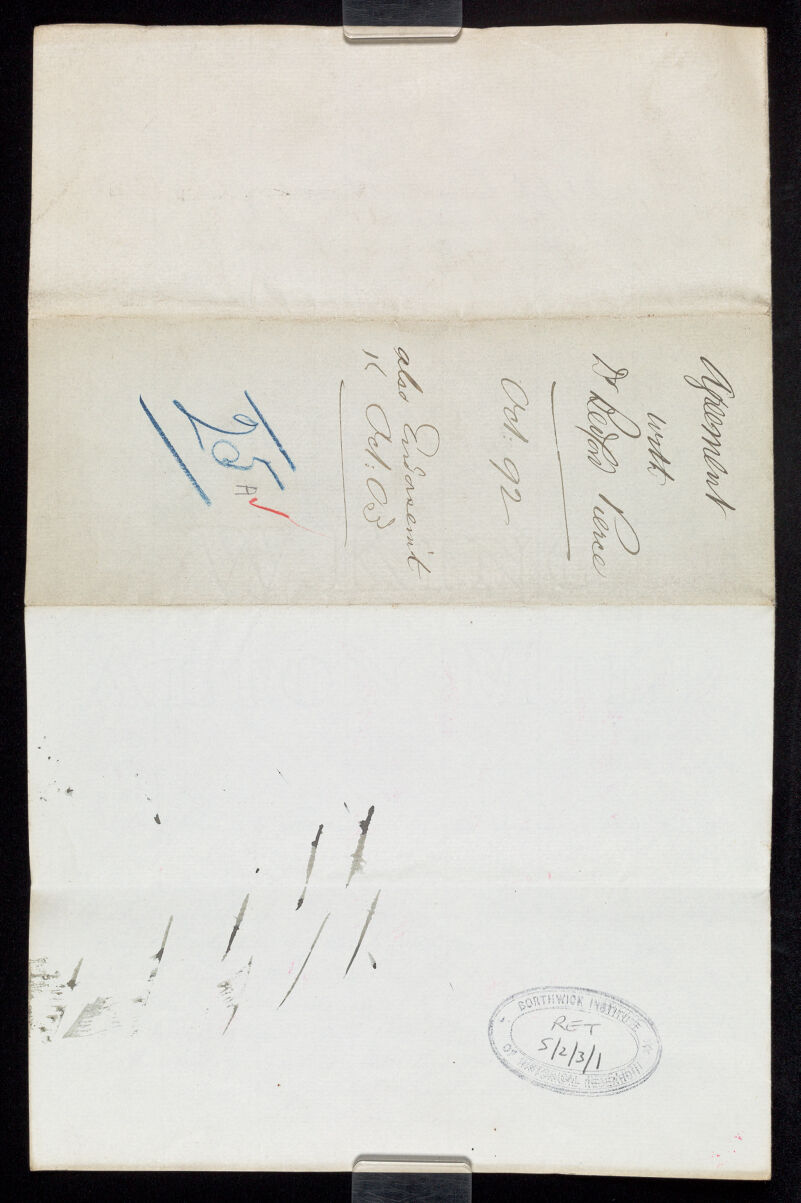 Agreement
with
Dr Bedford Pierce
Oct. 92
also Endorsem't
Oct: 03
25
A
BORTHWICK INSTITUTE
OF HISTORICAL RESEARCH
RET
5/2/3/1